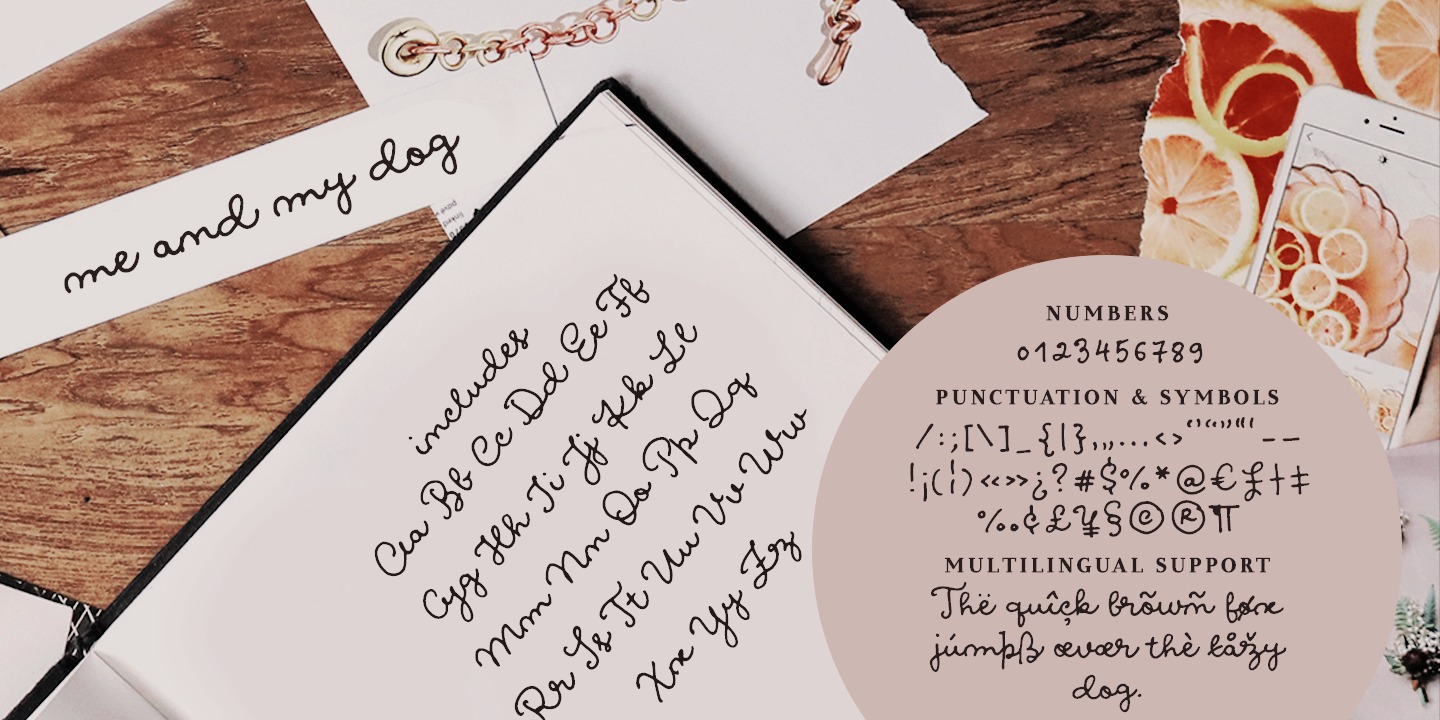 me and my dog
includes
Aa Bb Cc Dd Ee Ff
Gg Hh Ii Jj Kk Ll
Mm Nn Oo Pp Qq
Rr Ss Tt Uu Vv Ww
Xx Yy Zz
NUMBERS
0123456789
PUNCTUATION & SYMBOLS
/:;[\]_{|}‚„,…<>‘’“”"' –—
!¡(¦)«»¿?#$%*@€₤†‡
‰¢£¥§©®¶
MULTILINGUAL SUPPORT
Thë quîçk brõwñ føxe
júmpß œvær thè łåžy
dog.